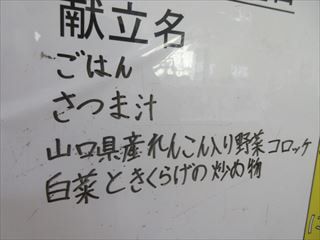 献立名
ごはん
さつま汁
山口県産れんこん入り野菜コロッケ
白菜ときくらげの炒め物